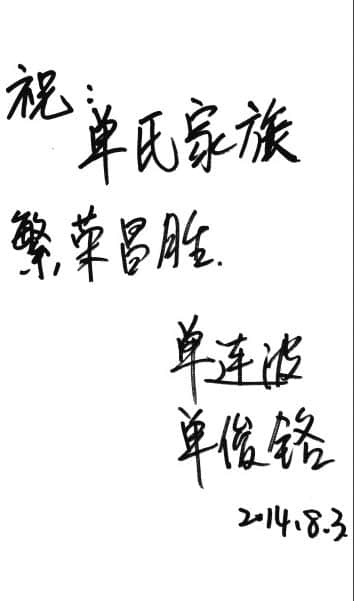 祝：
单氏家族
繁荣昌胜.
单连波
单俊铭
2014.8.3